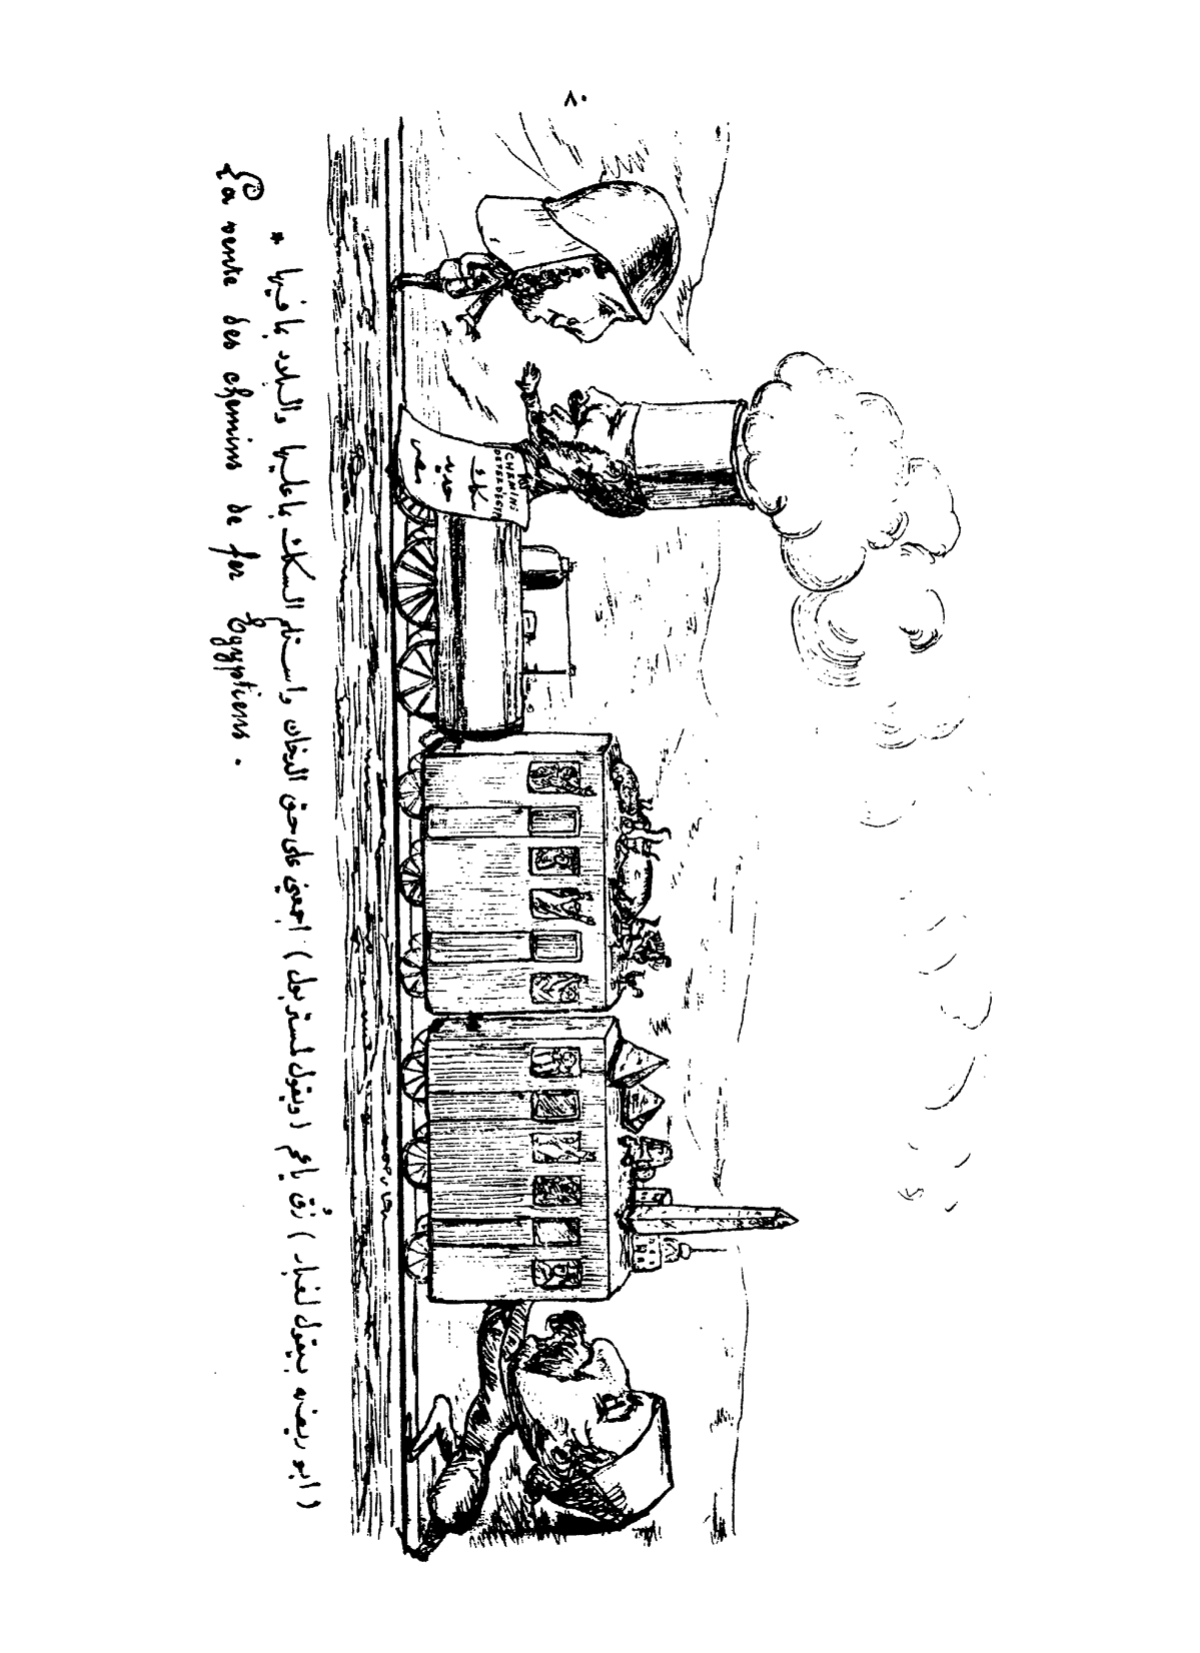 ٨٠
CHEMINS
سكة
حديد
مصر
(ابو ريضه بيقول لغبار) زُق ياعم (ويقول لمستر بول) على حق الدخان واستلم السكك باعليها والبلد بافيها *
La vente des chemins de fer Égyptiens.